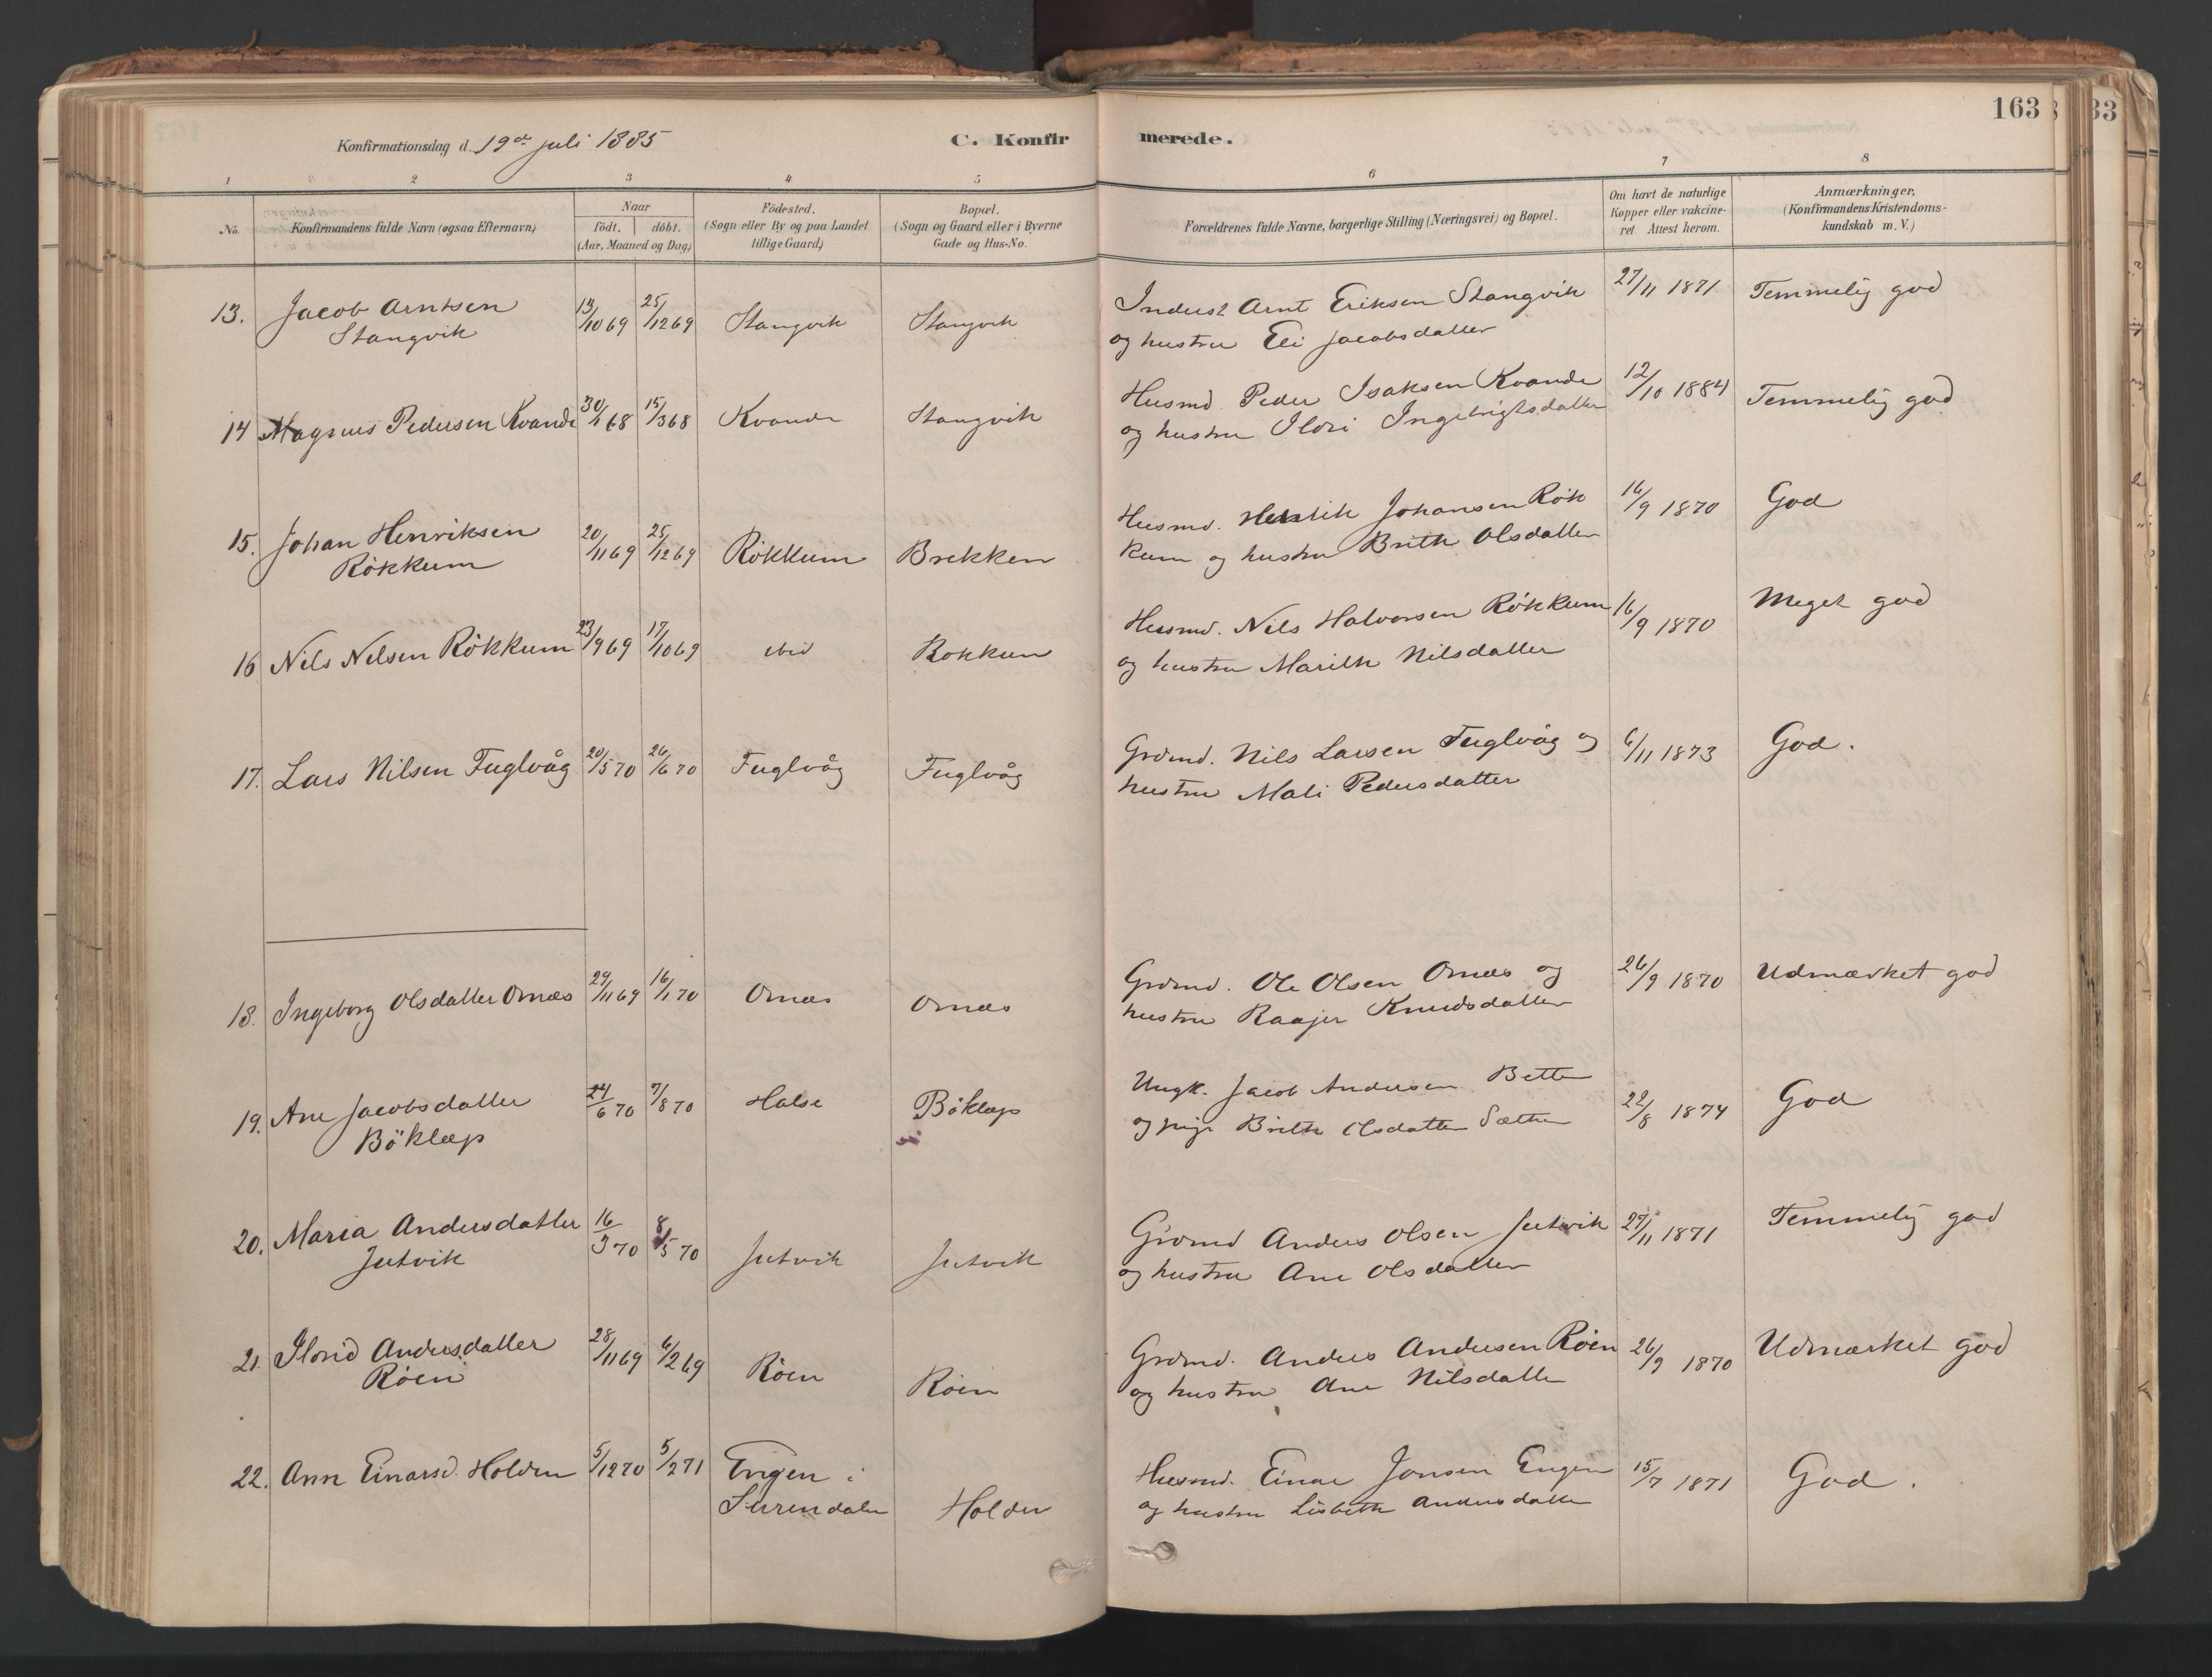 163
33
Konfirmationsdag d. 19de juli 1885
C. Konfir merede.
1 2 3 4 5 6 7 8
No.
Konfirmandens fulde Navn (ogsaa Efternavn)
Naar
födt. döbt.
(Aar, Maaned og Dag)
Födested.
(Sogn eller By og paa Landet
tillige Gaard)
Bopæl.
(Sogn og Gaard eller i Byerne
Gade og Hus-No.
Forældrenes fulde Navne, borgerlige Stilling (Næringsvei) og Bopæl.
Om havt de naturlige
Kopper eller vakcine-
ret. Attest herom.
Anmærkninger.
(Konfirmandens Kristendoms-
kundskab m. V.)
13. Jacob Arntsen 13/10 69 25/12 69 Stangvik Stangvik Inderst Arnt Eriksen Stangvik 27/11 1871 Temmelig god
Stangvik og hustru Eli Jacobsdatter
14 Magnus Pedersen Kvande 30/1 68 15/3 68 Kvande Stangvik Husmd. Peder Isaksen Kvande 12/10 1884 Temmelig god
og hustru Ildri Ingebrigtsdatter
15. Johan Henriksen 20/11 69 25/12 69 Rökkum Brekken Husmd. Henrik Johansen Rök 16/9 1870 God
Rökkum kum og hustru Brith Olsdatter
16 Nils Nilsen Rökkum 23/9 69 17/10 69 ibid Rokkum Husmd. Nils Halvorsen Rökkum 16/9 1870 Meget god
og hustru Marith Nilsdatter
17. Lars Nilsen Fuglvåg 20/5 70 26/6 70 Fuglvåg Fuglvåg Grdmd. Nils Larsen Fuglvåg og 6/11 1873 God.
hustru Mali Pedersdatter
18. Ingeborg Olsdatter Ornæs 29/11 69 16/1 70 Ornæs Ornæs Grdmd. Ole Olsen Ornæs og 26/9 1870 Udmærket god
hustru Raajer Knudsdatter
19. Ane Jacobsdatter 24/6 70 7/8 70 Halse Böklep Ungk. Jacob Andersen Betten 22/8 1874 God
Böklep og pige Brith Olsdatter Sæther
20. Maria Andersdatter 16/3 70 8/5 70 Jutvik Jutvik Grdmd Anders Olsen Jutvik 27/11 1871 Temmelig god
Jutvik og hustru Ane Olsdatter
21. Ildrid Andersdatter 28/11 69 6/2 69 Röen Röen Grdmd. Anders Andersen Röen 26/9 1870 Udmærket god
Röen og hustru Ane Nilsdatter
22. Ann Einarsd. Holden 5/12 70 5/2 71 Engen i Husmd. Einar Jonsen Engen 15/7 1871 God.
Surendalen Holden og hustru Lisbeth Andersdatter